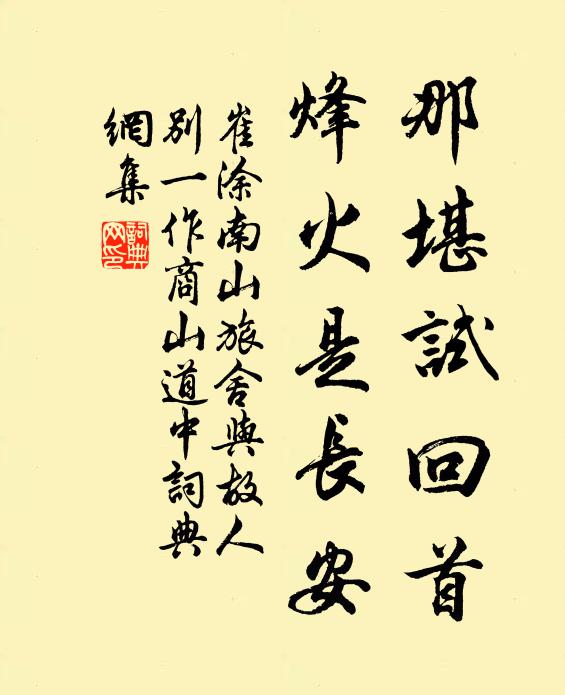 那堪試回首
烽火是長安
崔涂南山旅舍與故人
別一作商山道中詞典
網集
詞典網印